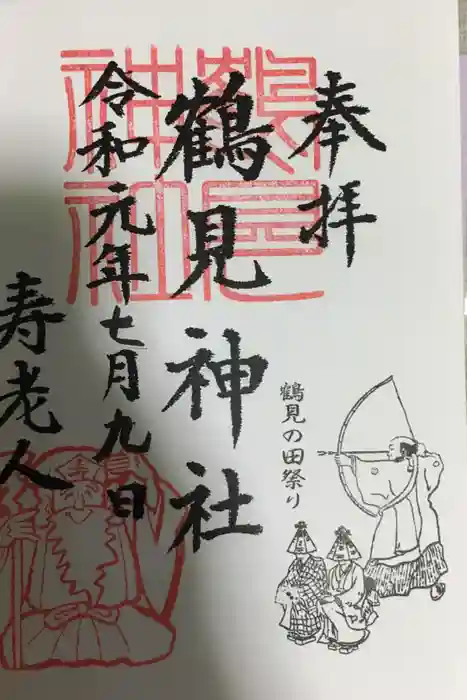 奉拝
鶴見神社
令和元年七月九日
寿老人
鶴見の田祭り
鶴見
神社